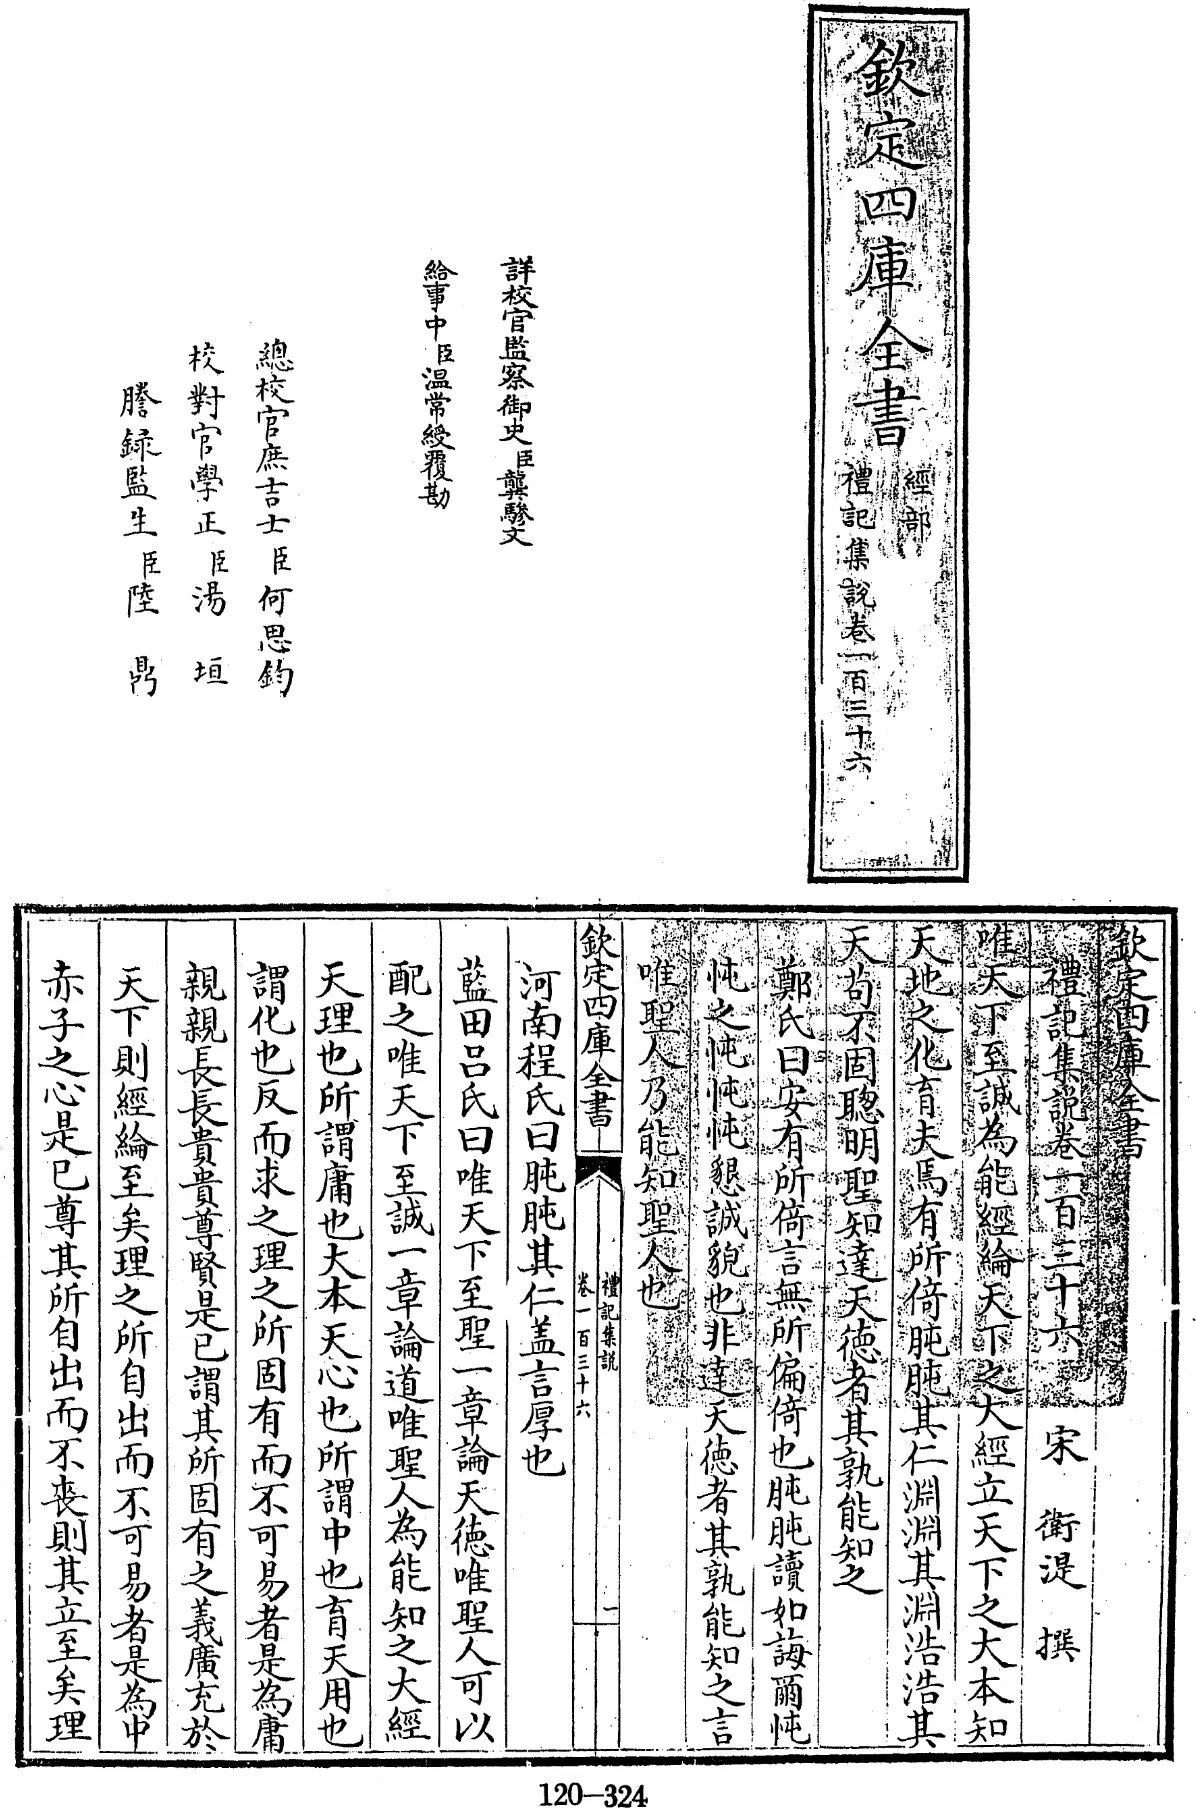 欽定四庫全書
經部
禮記集說卷一百三十六
詳校官監察御史臣龔驂文
給事中臣温常綬覆勘
總校官庶吉士臣何思鈞
校對官學正臣湯垣
謄録監生臣陸鼎
欽定四庫全書
禮記集說卷一百三十六 宋 衛湜 撰
唯天下至誠為能經綸天下之大經立天下之大本知
天地之化育夫焉有所倚肫肫其仁淵淵其淵浩浩其
天茍不固聰明聖知達天德者其孰能知之
鄭氏曰安有所倚言無所偏倚也肫肫讀如誨爾忳
忳之忳忳忳懇誠貌也非達天徳者其孰能知之言
唯聖人乃能知聖人也
欽定四庫全書
禮記集說
卷一百三十六
一
河南程氏曰肫肫其仁盖言厚也
藍田吕氏曰唯天下至聖一章論天徳唯聖人可以
配之唯天下至誠一章論道唯聖人為能知之大經
天理也所謂庸也大本天心也所謂中也育天用也
謂化也反而求之理之所固有而不可易者是為庸
親親長長貴貴尊賢是已謂其所固有之義廣充於
天下則經綸至矣理之所自出而不可易者是為中
赤子之心是已尊其所自出而不喪則其立至矣理
120-324